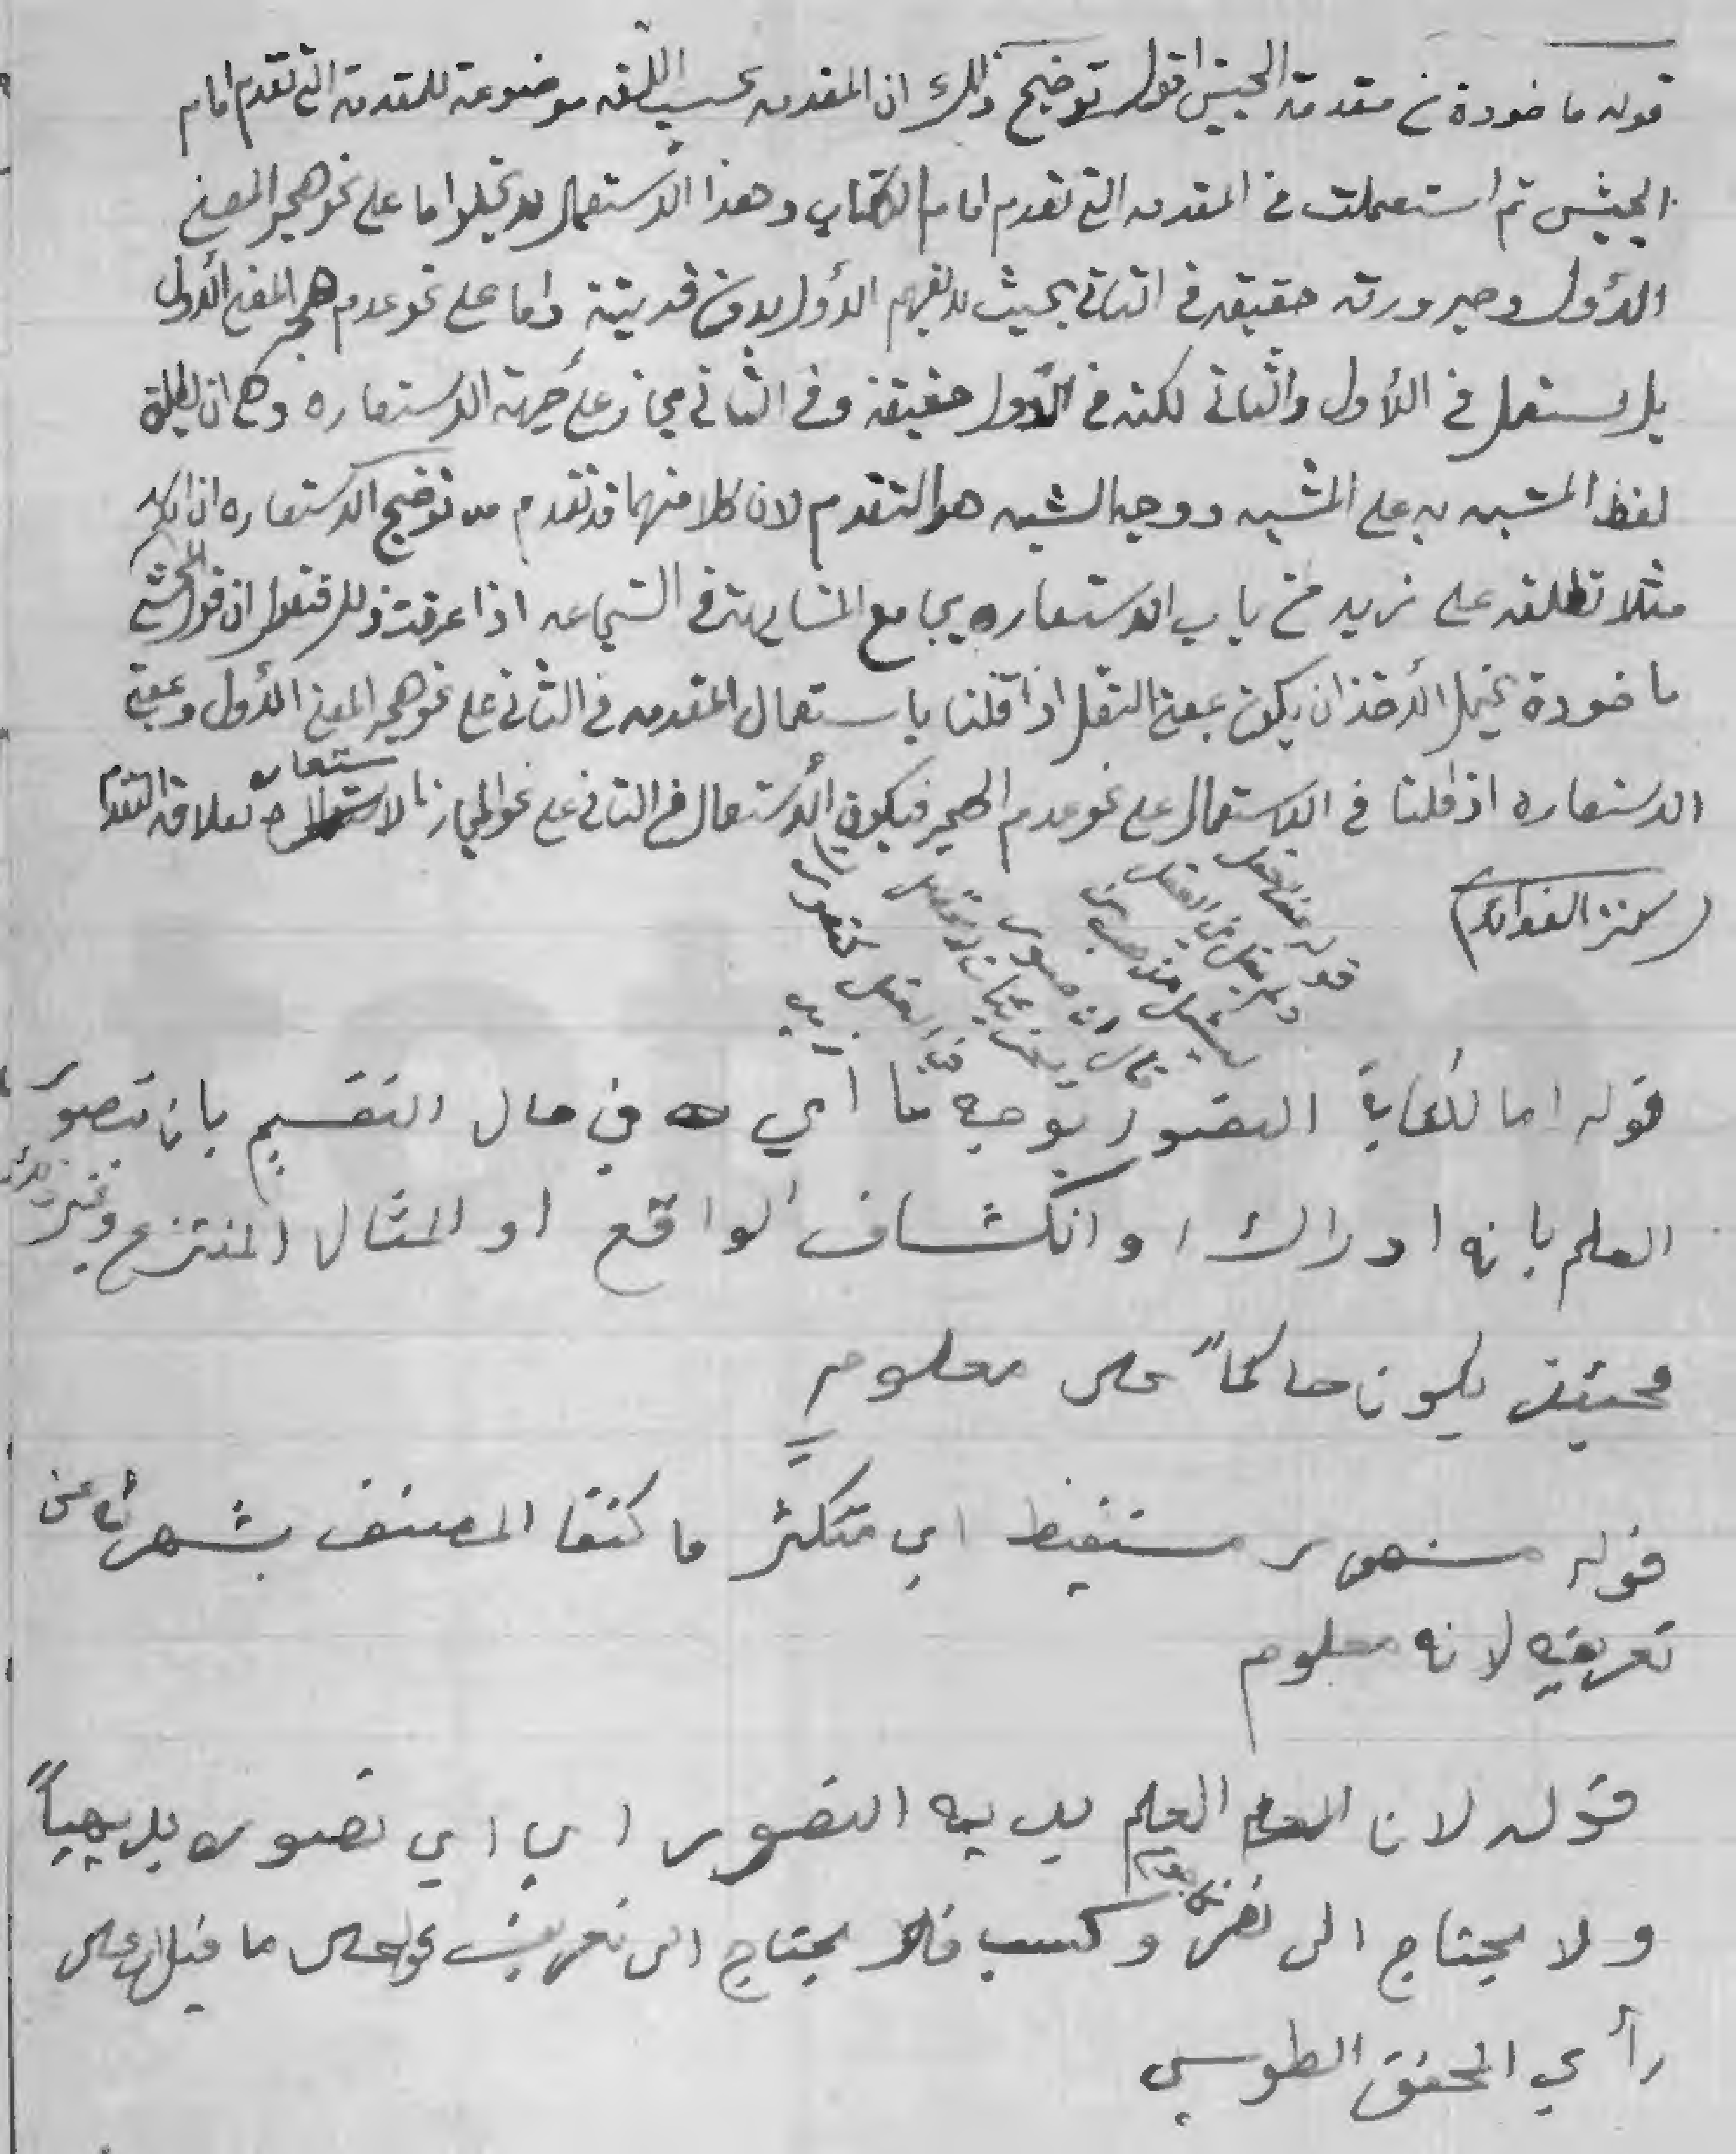 قوله ماخوذة من مقدمة الجيش اقول توضيح ذلك ان المقدمه بحسب اللغه موضوعة للمقدمة التي تقدم امام
الجيش ثم استعملت في المقدمه التي تقدم امام الكتاب وهذا الاستعمال لا يخلو اما على نحو هجر المعنى
الأول وصيرورته حقيقه في الثاني بحيث لا يفهم الأول بدون قرينة واما على نحو عدم هجر المعنى الأول
بل يستعمل في الأول والثاني لكنه في الأول حقيقة وفي الثاني مجاز على جهة الاستعاره وهي ان يطلق
لفظ المشبه به على المشبه ووجه الشبه هو التقدم لان كلا منهما قد تقدم توضيح الاستعاره ان
مثلا تطلقه على زيد من باب الاستعاره بجامع المشابهة في الشجاعه اذا عرفت ذلك فنقول ان قول المحشي
ماخوذة يحتمل الأخذ ان يكون بمعنى النقل اذا قلنا باستعمال المقدمه في الثاني على نحو هجر المعنى الأول وبمعنى
الاستعاره اذا قلنا في الاستعمال على نحو عدم الهجر فيكون الأستعمال في الثاني على نحو المجاز بالاستعاره لعلاقة التقدم
(كنز الفوائد)
قوله اما لكفاية التصور بوجه ما أي في حال التقسيم بان تصور
العلم بانه ادراك او انكشاف الواقع او المثال المنتزع وغير
فحينئذ يكون حاكماً على معلوم
قوله مشهور مستفيظ اي متكثر ما كتفا المصنف بشهرته عن
تعريفه لانه معلوم
قوله لان العلم بديه التصور اي اي تصوره بديهياً
ولا يحتاج الى نظر وكسب فلا يحتاج الى تعريف على ما قيل على
رأي المحقق الطوسي